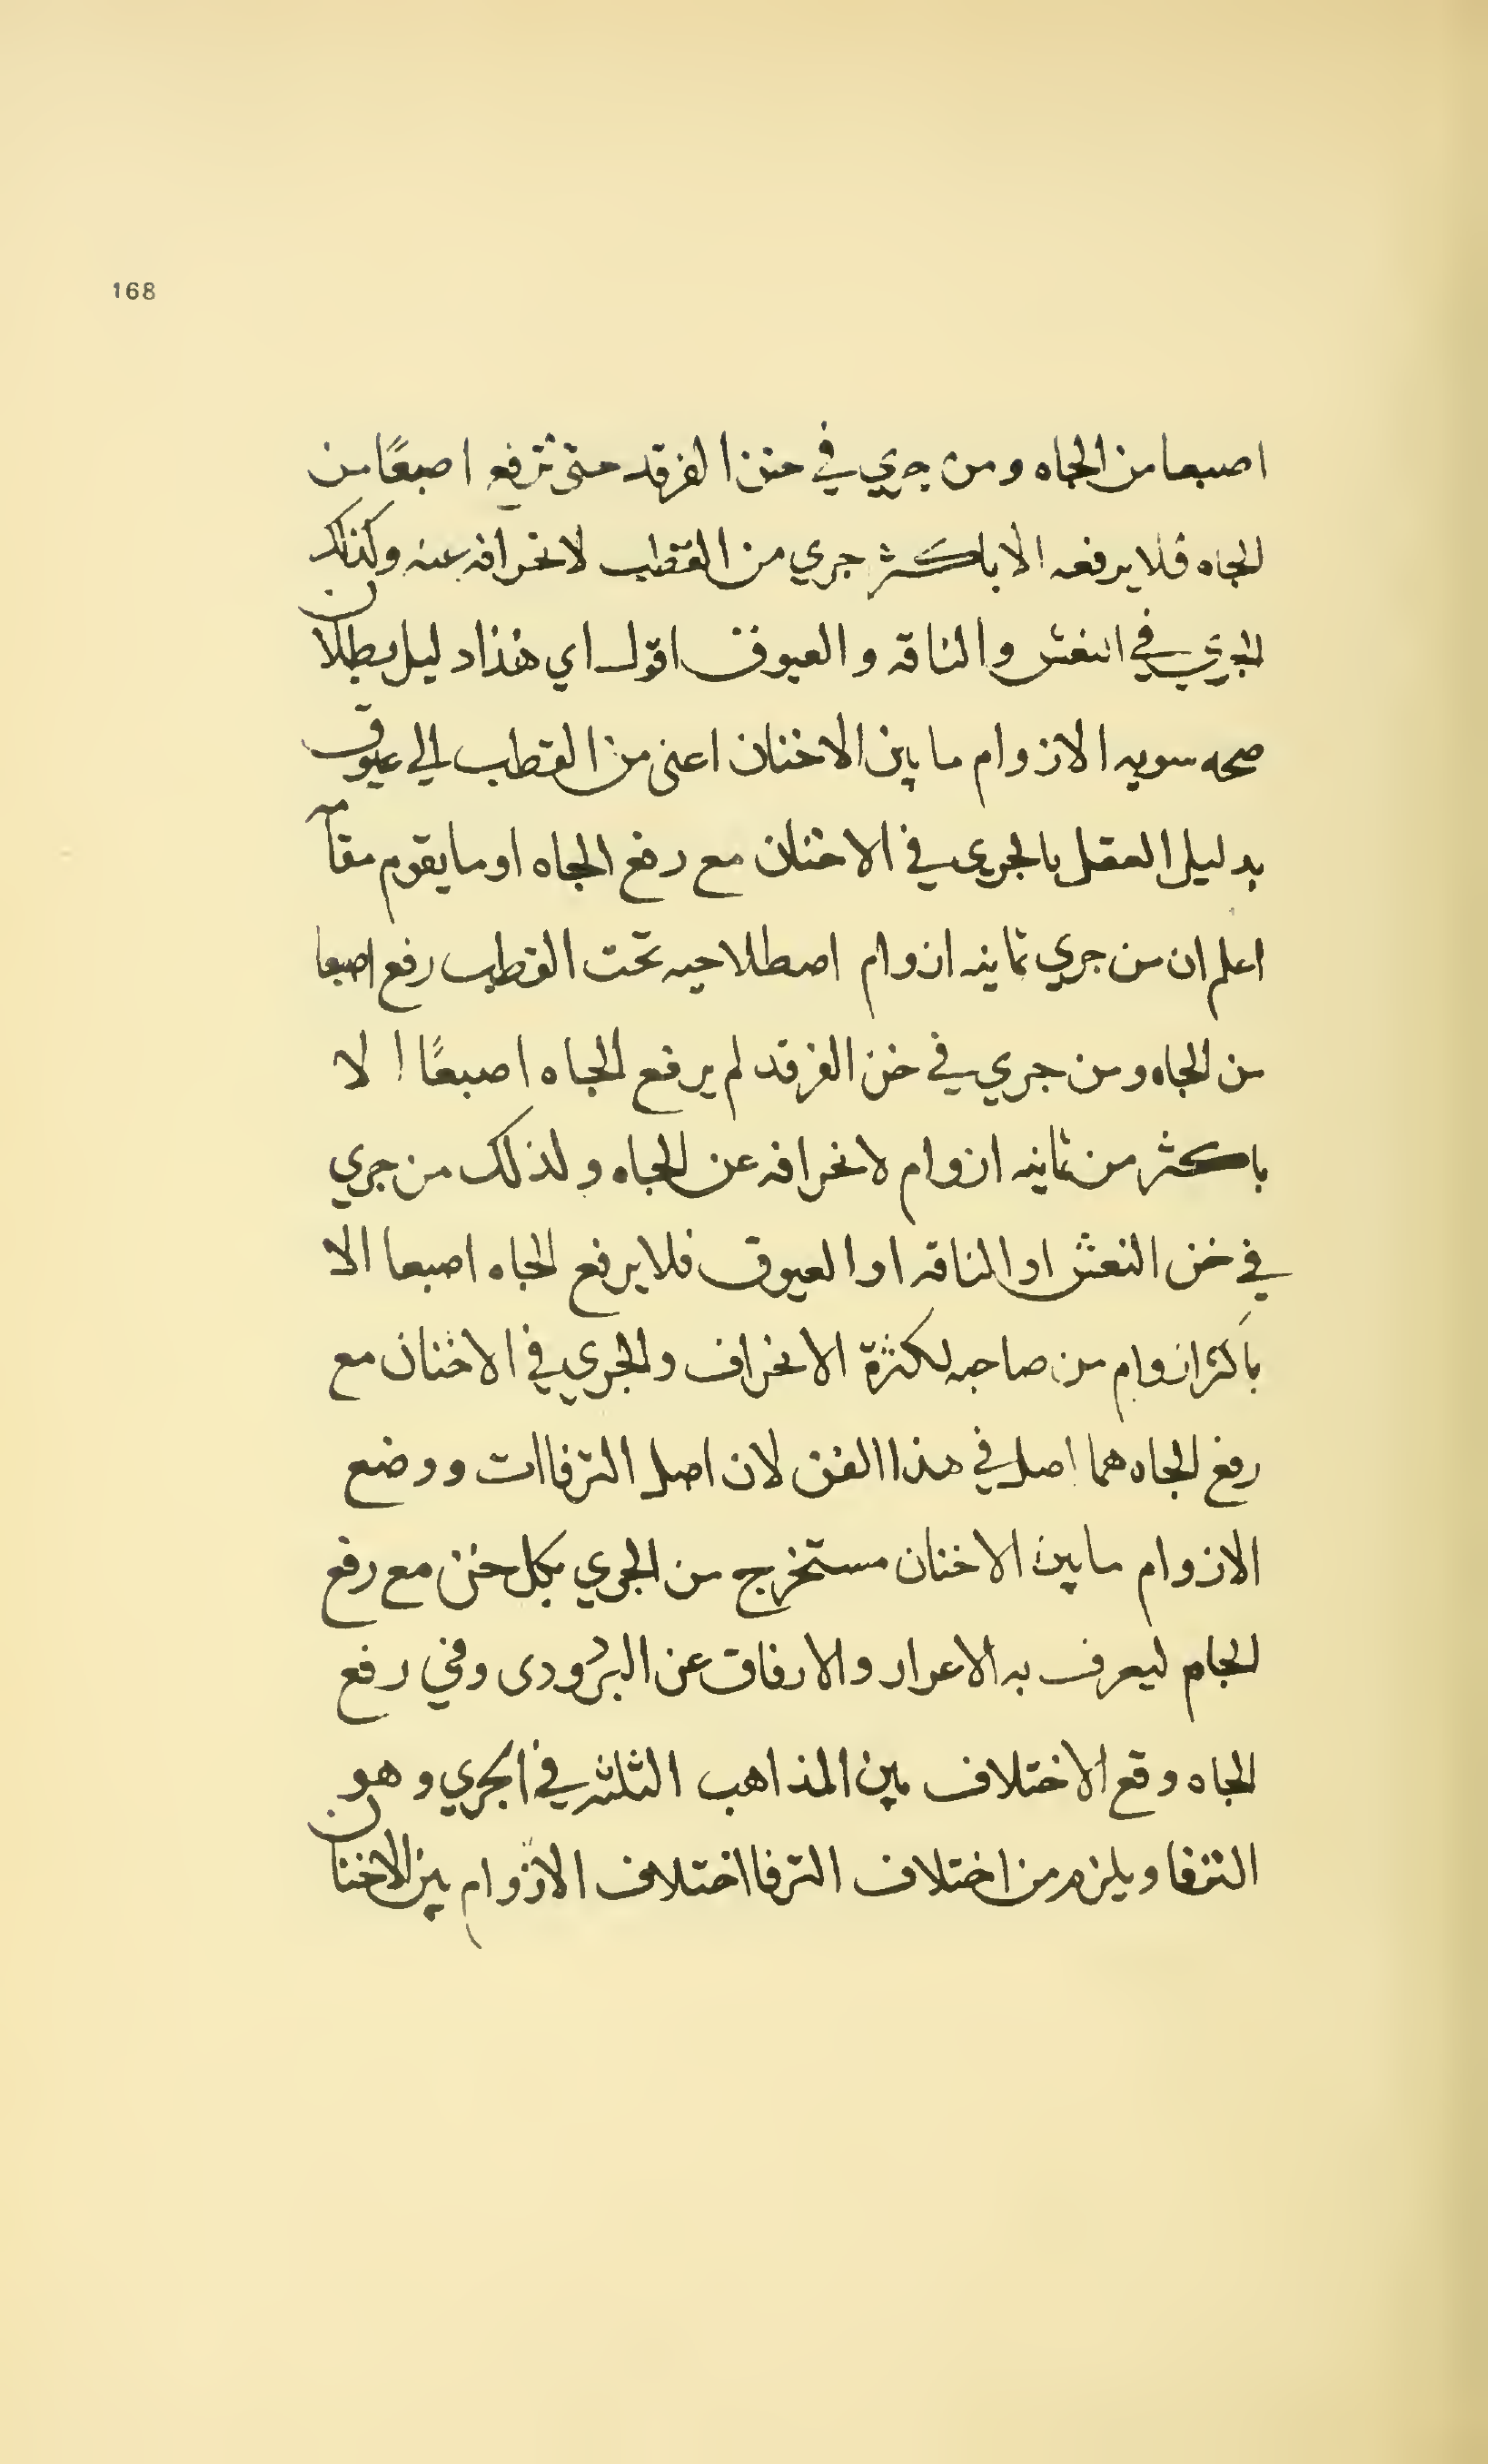 168
اصبعا من الجاه ومن جري في خن الفرقد حتى ترفع اصبعًا من
الجاه فلا يرفعه الا باكثر جري من القطب لانحرافه عنه وكذلك
الجري في النعش والناقه والعيوق اقول اي هذا دليل بطلان
صحه سويه الازوام ما بين الاخنان اعنى من القطب الي عيوق
بدليل العقل بالجرى في الاخنان مع رفع الجاه او ما يقوم مقامه
اعلم ان من جري ثمانيه ازوام اصطلاحيه تحت القطب رفع اصبعا
من الجاه ومن جري في خن الفرقد لم يرفع الجاه اصبعًا الا
باكثر من ثمانيه ازوام لانحرافه عن الجاه ولذلك من جري
في خن النعش او الناقه او العيوق فلا يرفع الجاه اصبعا الا
باكثر ازوام من صاحبه لكثرة الانحراف والجري في الاخنان مع
رفع الجاه هما اصل في هذا الفن لان اصل الترفاات ووضع
الازوام ما بين الاخنان مستخرج من الجري بكل خن مع رفع
الجاه ليعرف به الاعرار والارفاق عن البرودى وفي رفع
الجاه وقع الاختلاف بين المذاهب الثلثه في الجري وهو
الترفا ويلزم من اختلاف الترفا اختلاف الازوام بين الاخنان